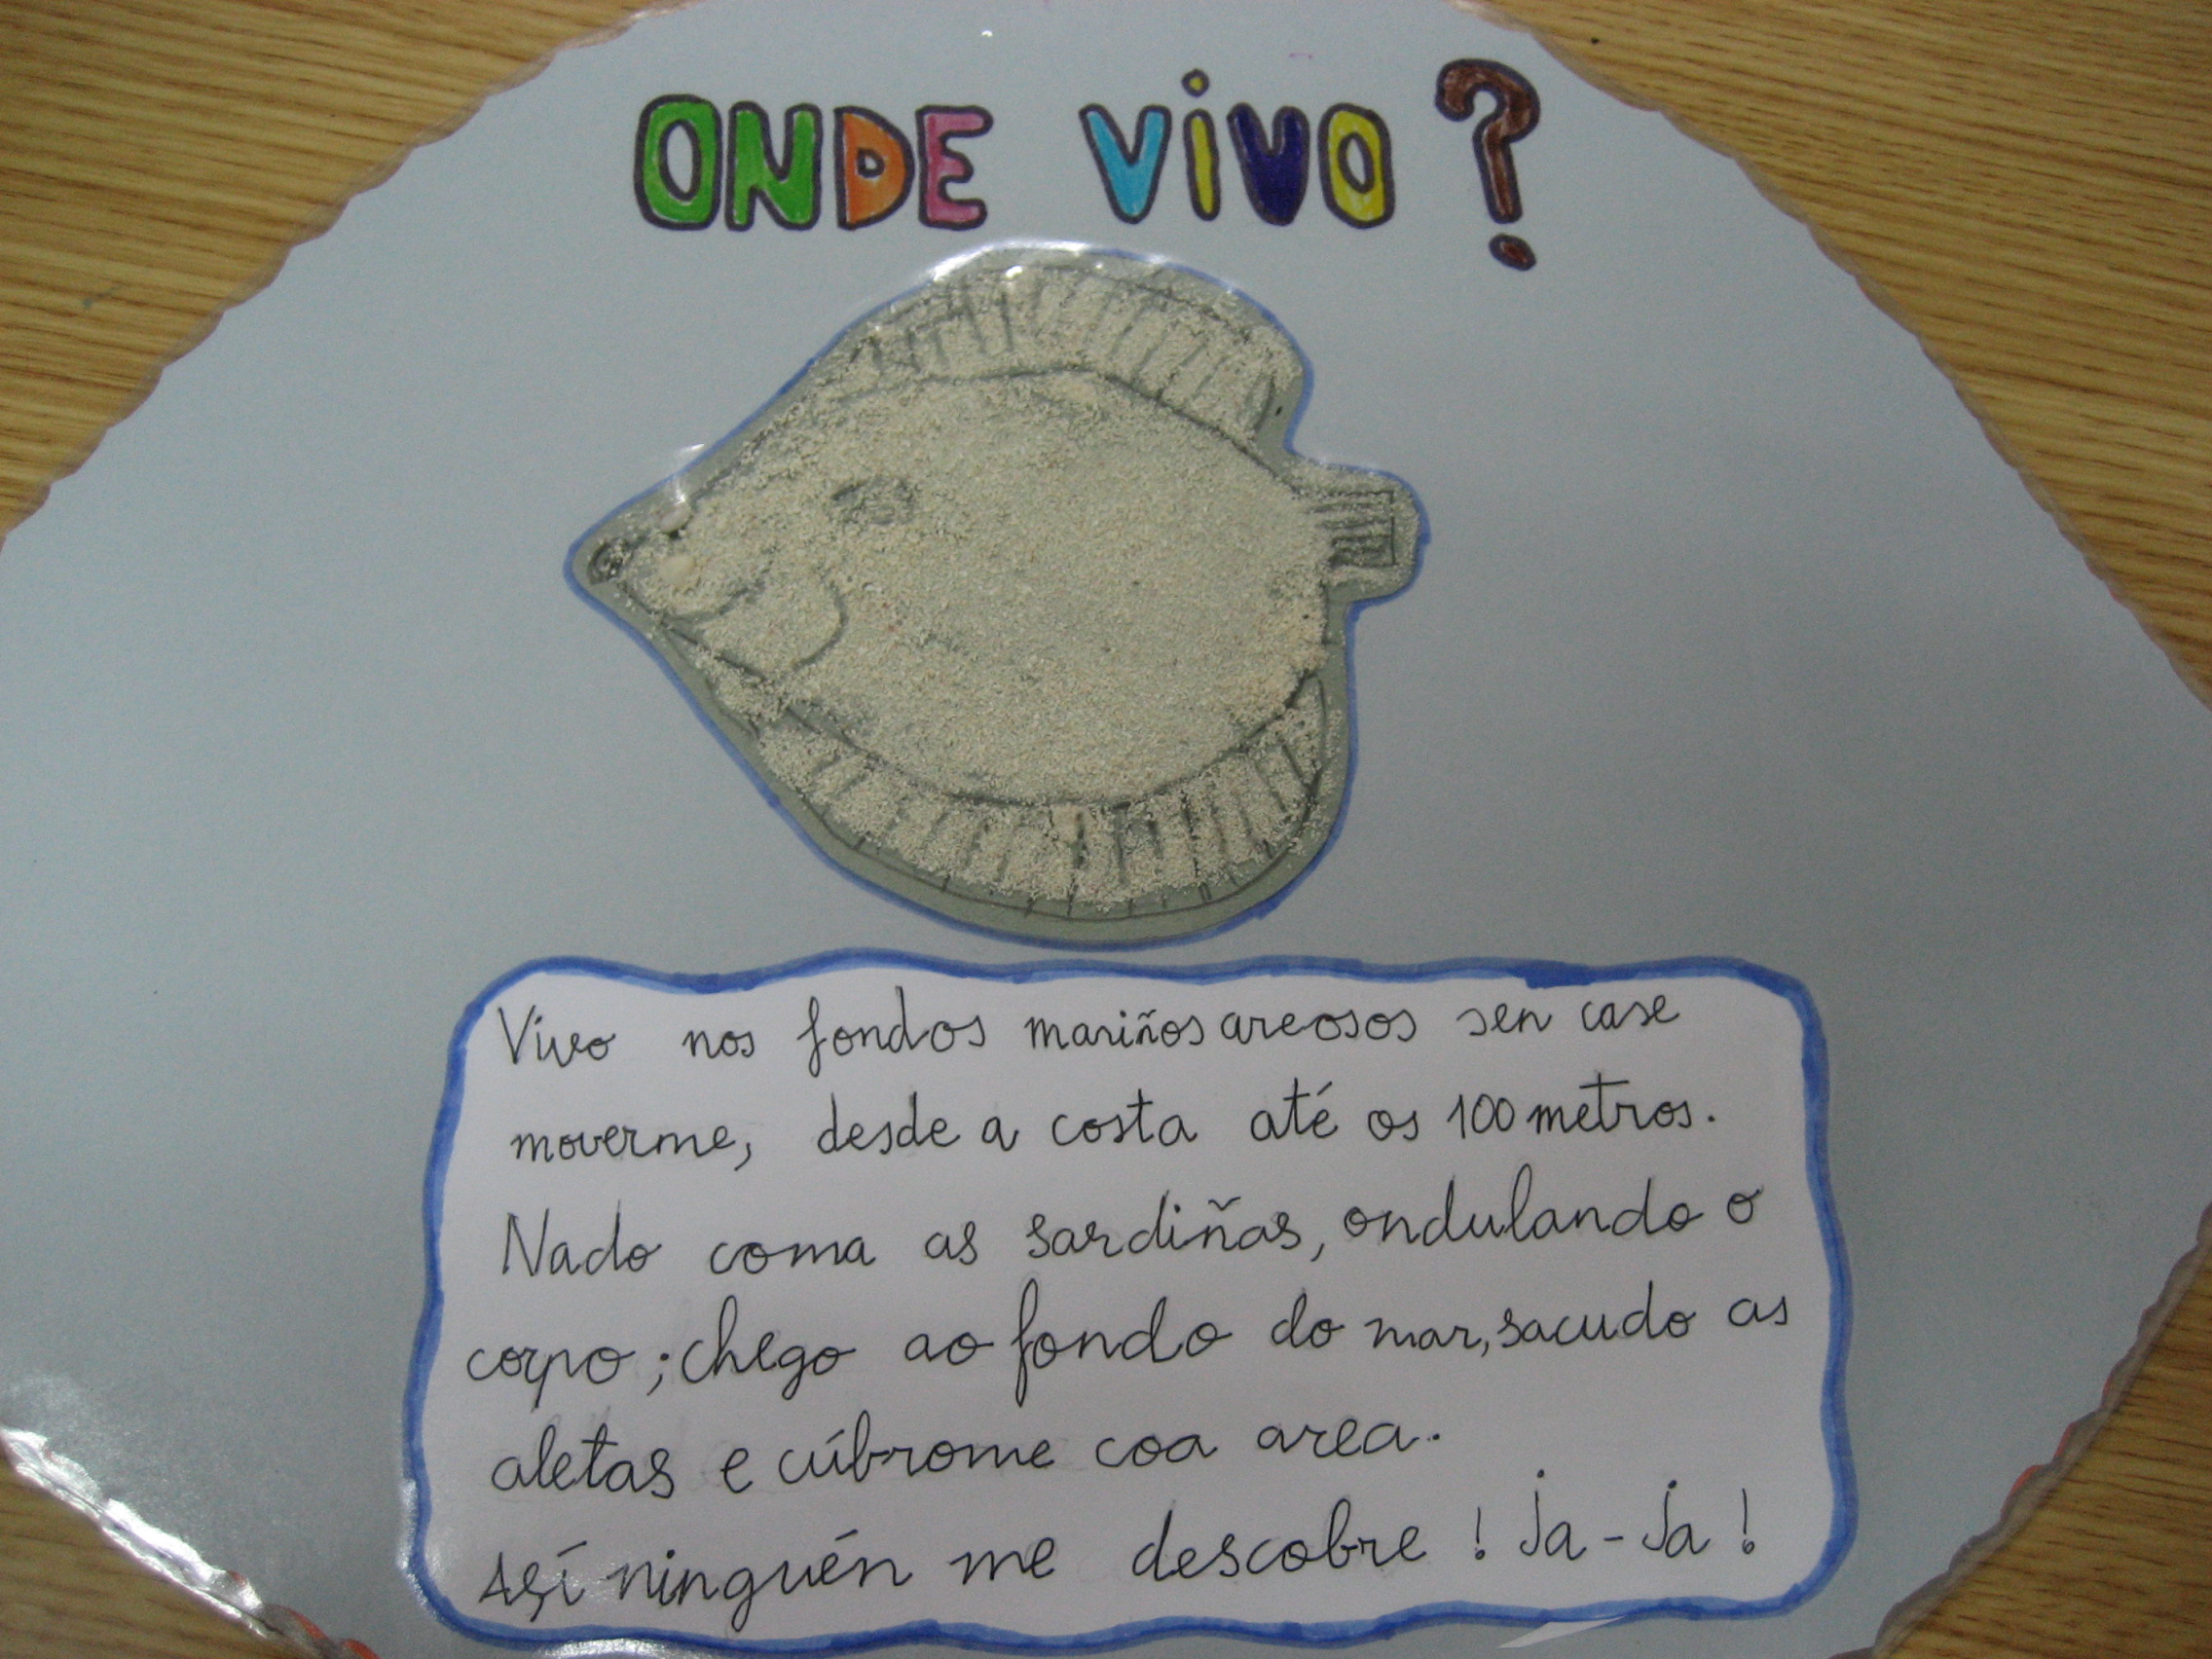 ONDE VIVO?
Vivo nos fondos mariños areosos sen case
moverme, desde a costa até os 100 metros.
Nado coma as sardiñas, ondulando o
corpo; chego ao fondo do mar, sacudo as
aletas e cúbrome coa area.
Así ninguén me descobre ! ja-ja !